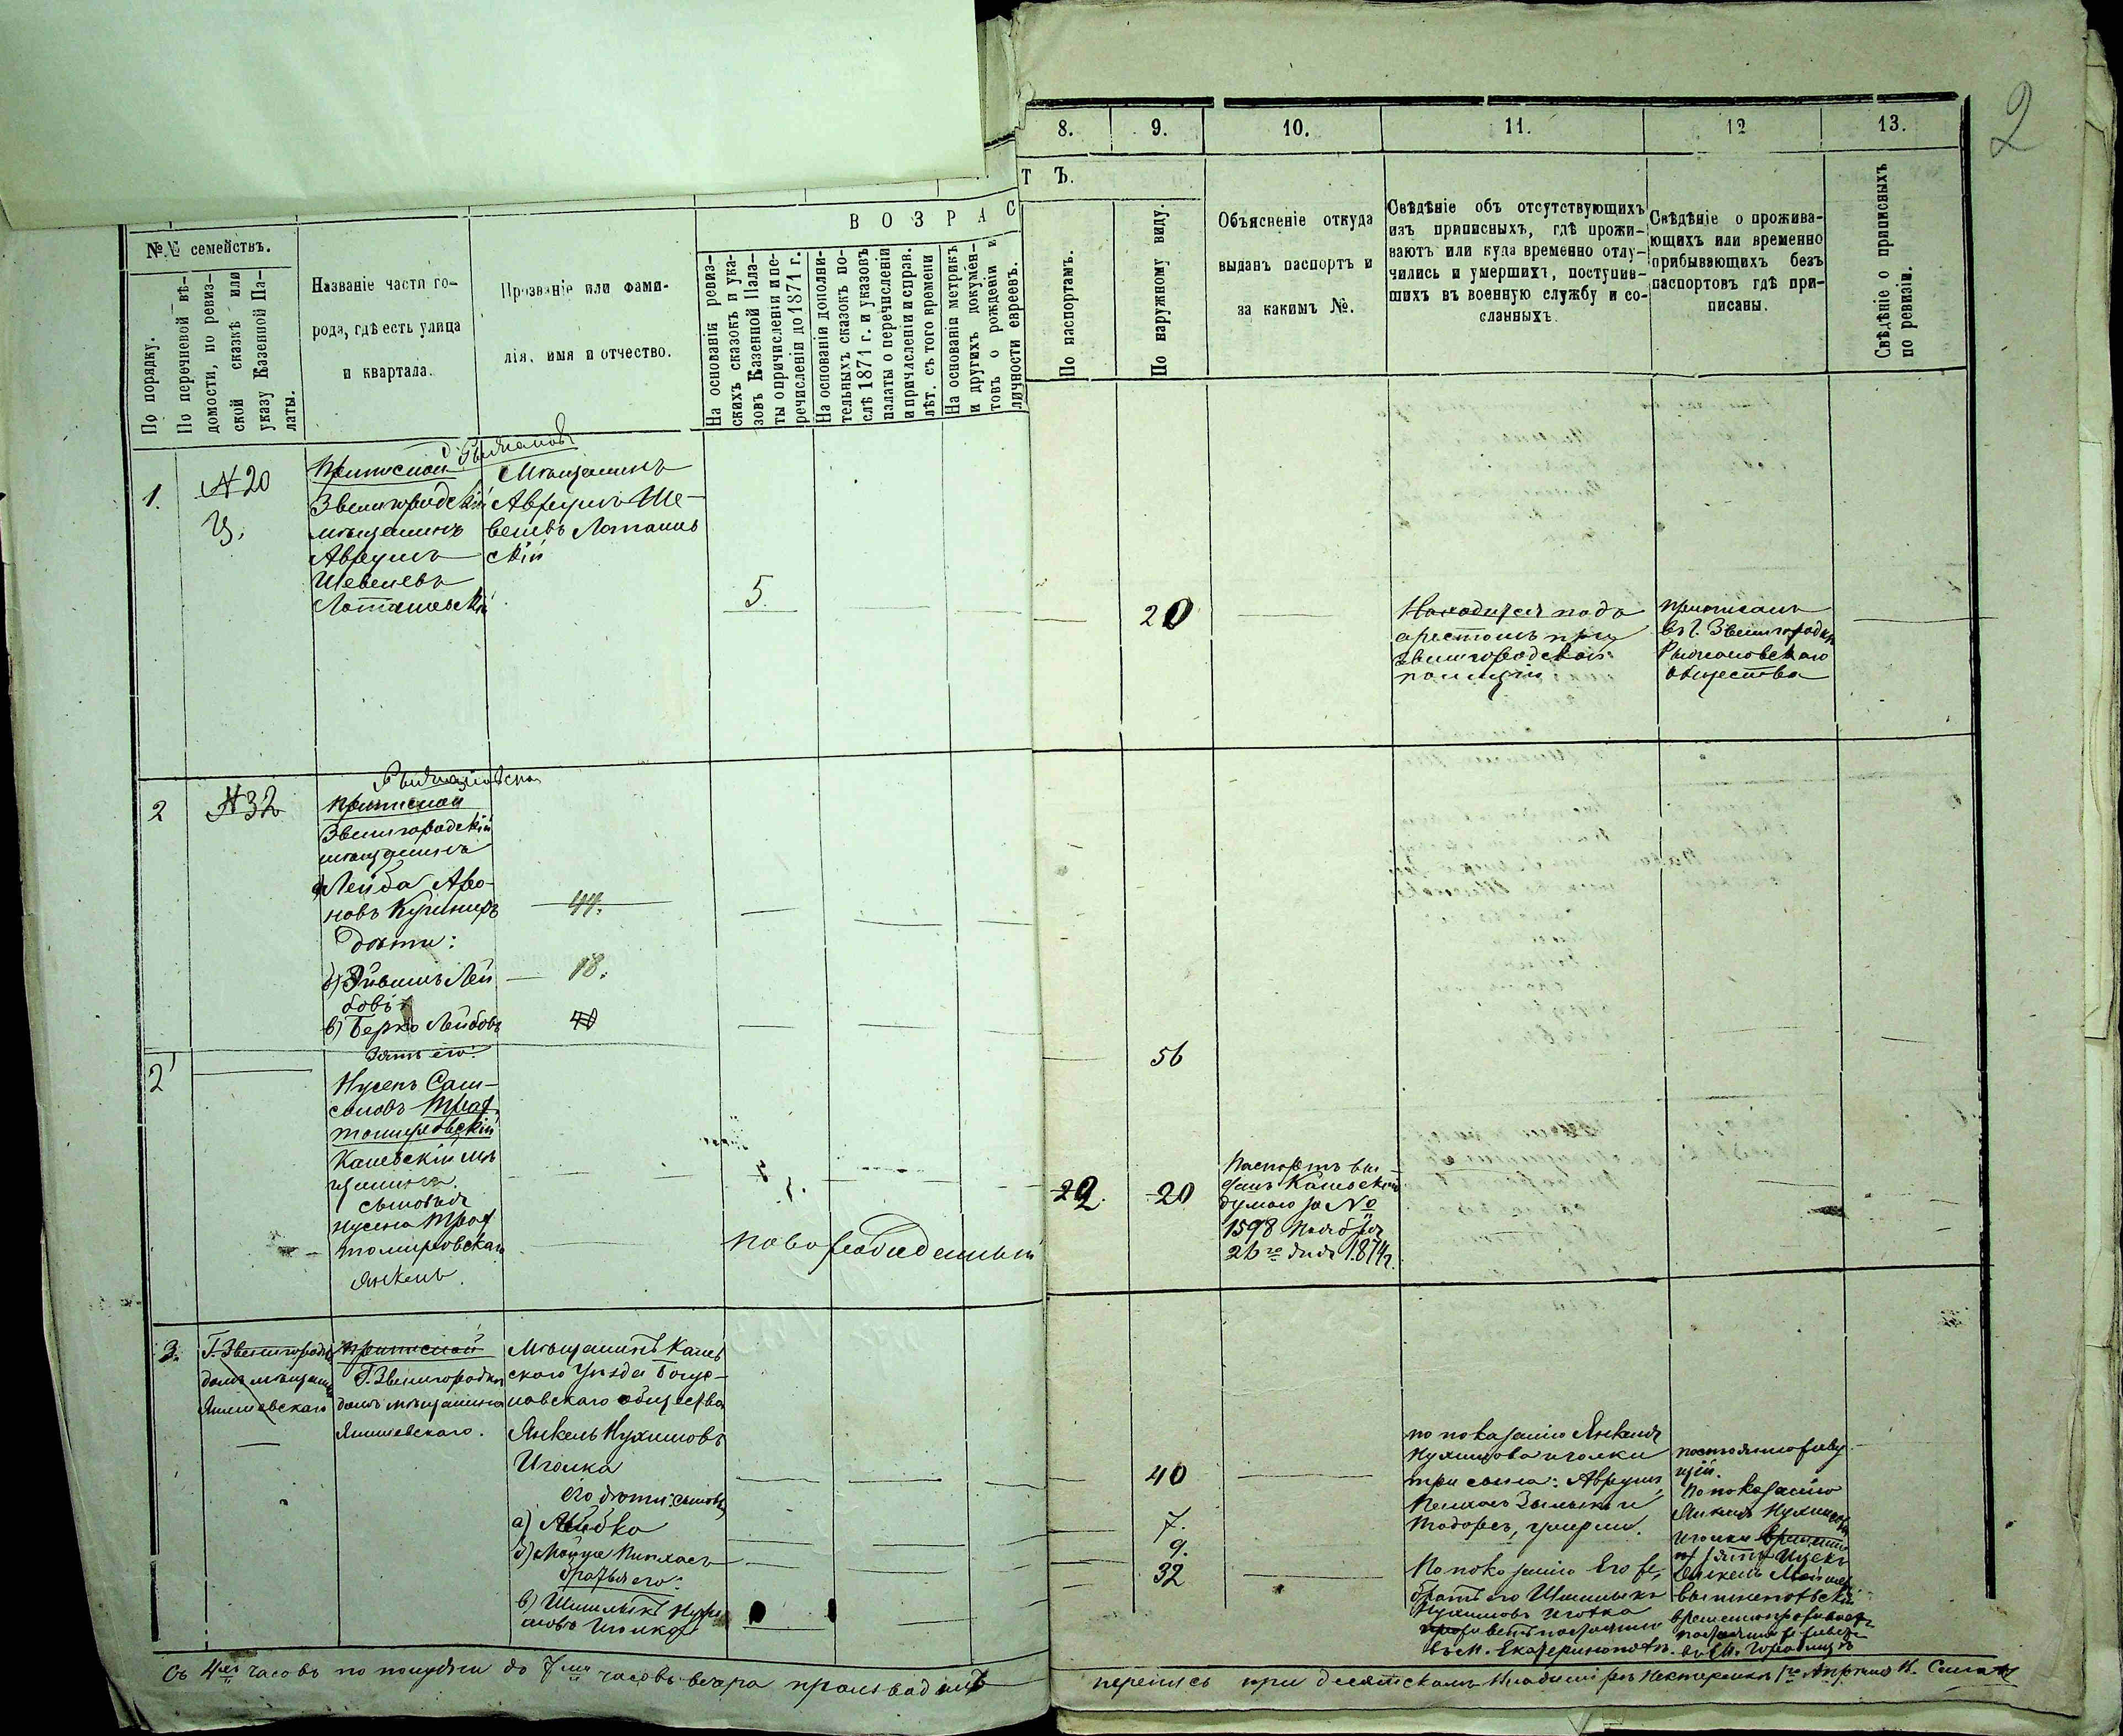 2
8.
9.
10.
11.
12
13.
В О З Р А С
Т Ъ.
№№ семействъ.
По порядку.
По перечневой вѣ-
домости, по ревиз-
ской сказкѣ или
указу Казенной Па-
латы.
Названіе части го-
рода, гдѣ есть улица
и квартала.
Прозваніе или фами-
лія, имя и отчество.
На основаніи ревиз-
скихъ сказокъ и ука-
зовъ Казенной Пала-
ты о причисленіи и пе-
речисленіи до 1871 г.
На основаніи дополни-
тельныхъ сказокъ по-
слѣ 1871 г. и указовъ
палаты о перечисленіи
и причисленіи и справ.
лѣт. съ того времени
На основаніи метрикъ
и другихъ докумен-
товъ о рожденіи и
личности евреевъ.
По паспортамъ.
По наружному виду.
Объясненіе откуда
выданъ паспортъ и
за какимъ №.
Свѣдѣніе объ отсутствующихъ
изъ приписныхъ, гдѣ прожи-
ваютъ или куда временно отлу-
чились и умершихъ, поступив-
шихъ въ военную службу и со-
сланныхъ.
Свѣдѣніе о прожива-
ющихъ или временно
прибывающихъ безъ
паспортовъ гдѣ при-
писаны.
Свѣдѣніе о приписныхъ
по ревизіи.
1.
№ 20
Приписной
Звенигородскій
мѣщанинъ
Аврумъ
Шевелевъ
Лоташевскій
Мѣщанинъ
Аврумъ Ше-
велевъ Лоташев
скій
5
20
Находится подъ
арестомъ при
Звенигородской
полиціи
приписанъ
въ г. Звенигородкѣ
Рыжановскаго
общества
2
№ 32
Приписной
Звенигородскій
мѣщанинъ
а) Лейба Аро-
новъ Кушниръ
44.
дѣти:
Лей
бовъ
18.
в) Берко Лейбовъ
40
56
2
зять его
Нусенъ Сам-
соновъ
Каневскій мѣ
щанинъ.
сыновья
Нусена
Янкель
22.
20
Паспортъ вы-
данъ Каневской
думою за №
1598 Ноября
26го дня 1874 г.
новорожденный
3.
Г. Звенигородка
домъ мѣщанина
Янишевскаго
приписной
Г. Звенигородка
домъ мѣщанина
Янишевскаго.
Мѣщанинъ Канев
скаго Уѣзда Богус-
лавскаго общества
Янкель Нухимовъ
Иголка
его дѣти: сыновья
а) Лейбко
б) Мойше Пинхасъ
братья его:
в) Шмилыкъ Нухи
мовъ Иголка
40
7.
9.
32
по показанію Янкеля
Нухимова иголки
три сына: Аврумъ,
Тодоръ, умерли.
По показанію Его же,
братъ его Шмилыкъ
Нухимовъ иголка
въ м. Екатеринополѣ.
постоянно живу
щій.
По показанію
Янкеля Нухимова
иголки
зять Ицекъ
временно проживаетъ
Съ 4хъ часовъ по полудни до 7ми часовъ вечера производилъ
перепись при десятскомъ